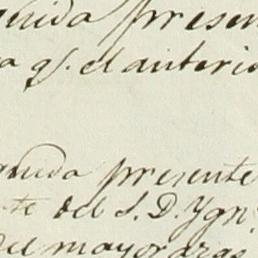 guida presen
a qs. el anterio
guida presente
te del S. D. Ygn
del mayorazg